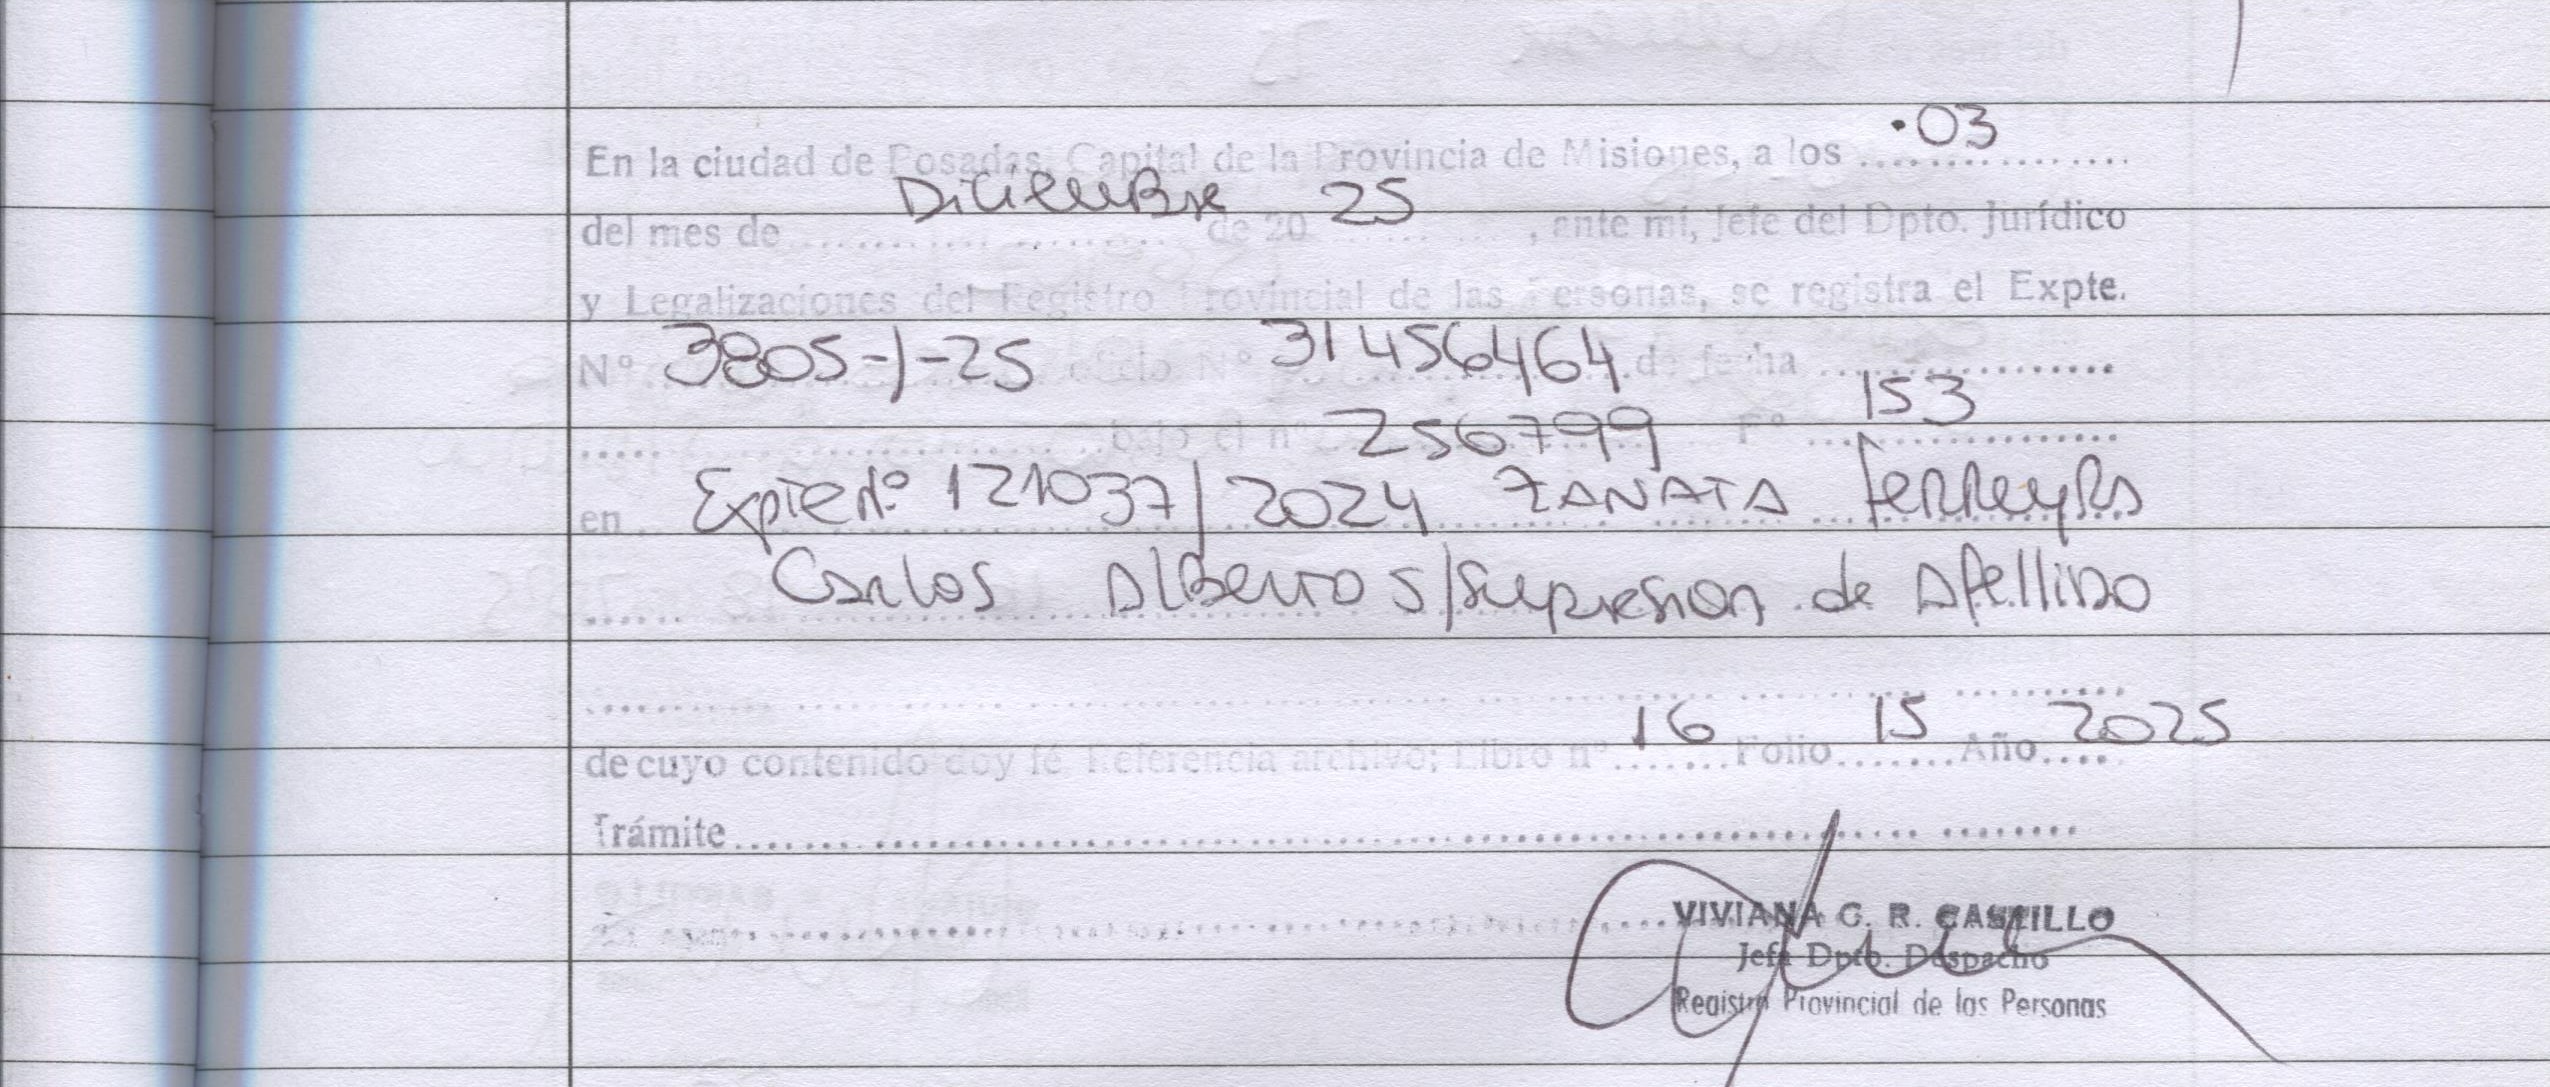 En la ciudad de Posadas, Capital de la Provincia de Misiones, a los 03
del mes de Diciembre de 20 25, ante mí, Jefe del Dpto. Jurídico
y Legalizaciones del Registro Provincial de las Personas, se registra el Expte.
Nº 3805-J-25 oficio Nº 31456464 de fecha
bajo el nº 256799 Fº 153
en Expte nº 121037/2024 ZANATA Ferreyra
Carlos Alberto s/supresion de Apellido
de cuyo contenido doy fé. Referencia archivo; Libro nº 16 Folio 15 Año 2025
Trámite
VIVIANA C. R. CASTILLO
Jefa Dpto. Despacho
Registro Provincial de las Personas